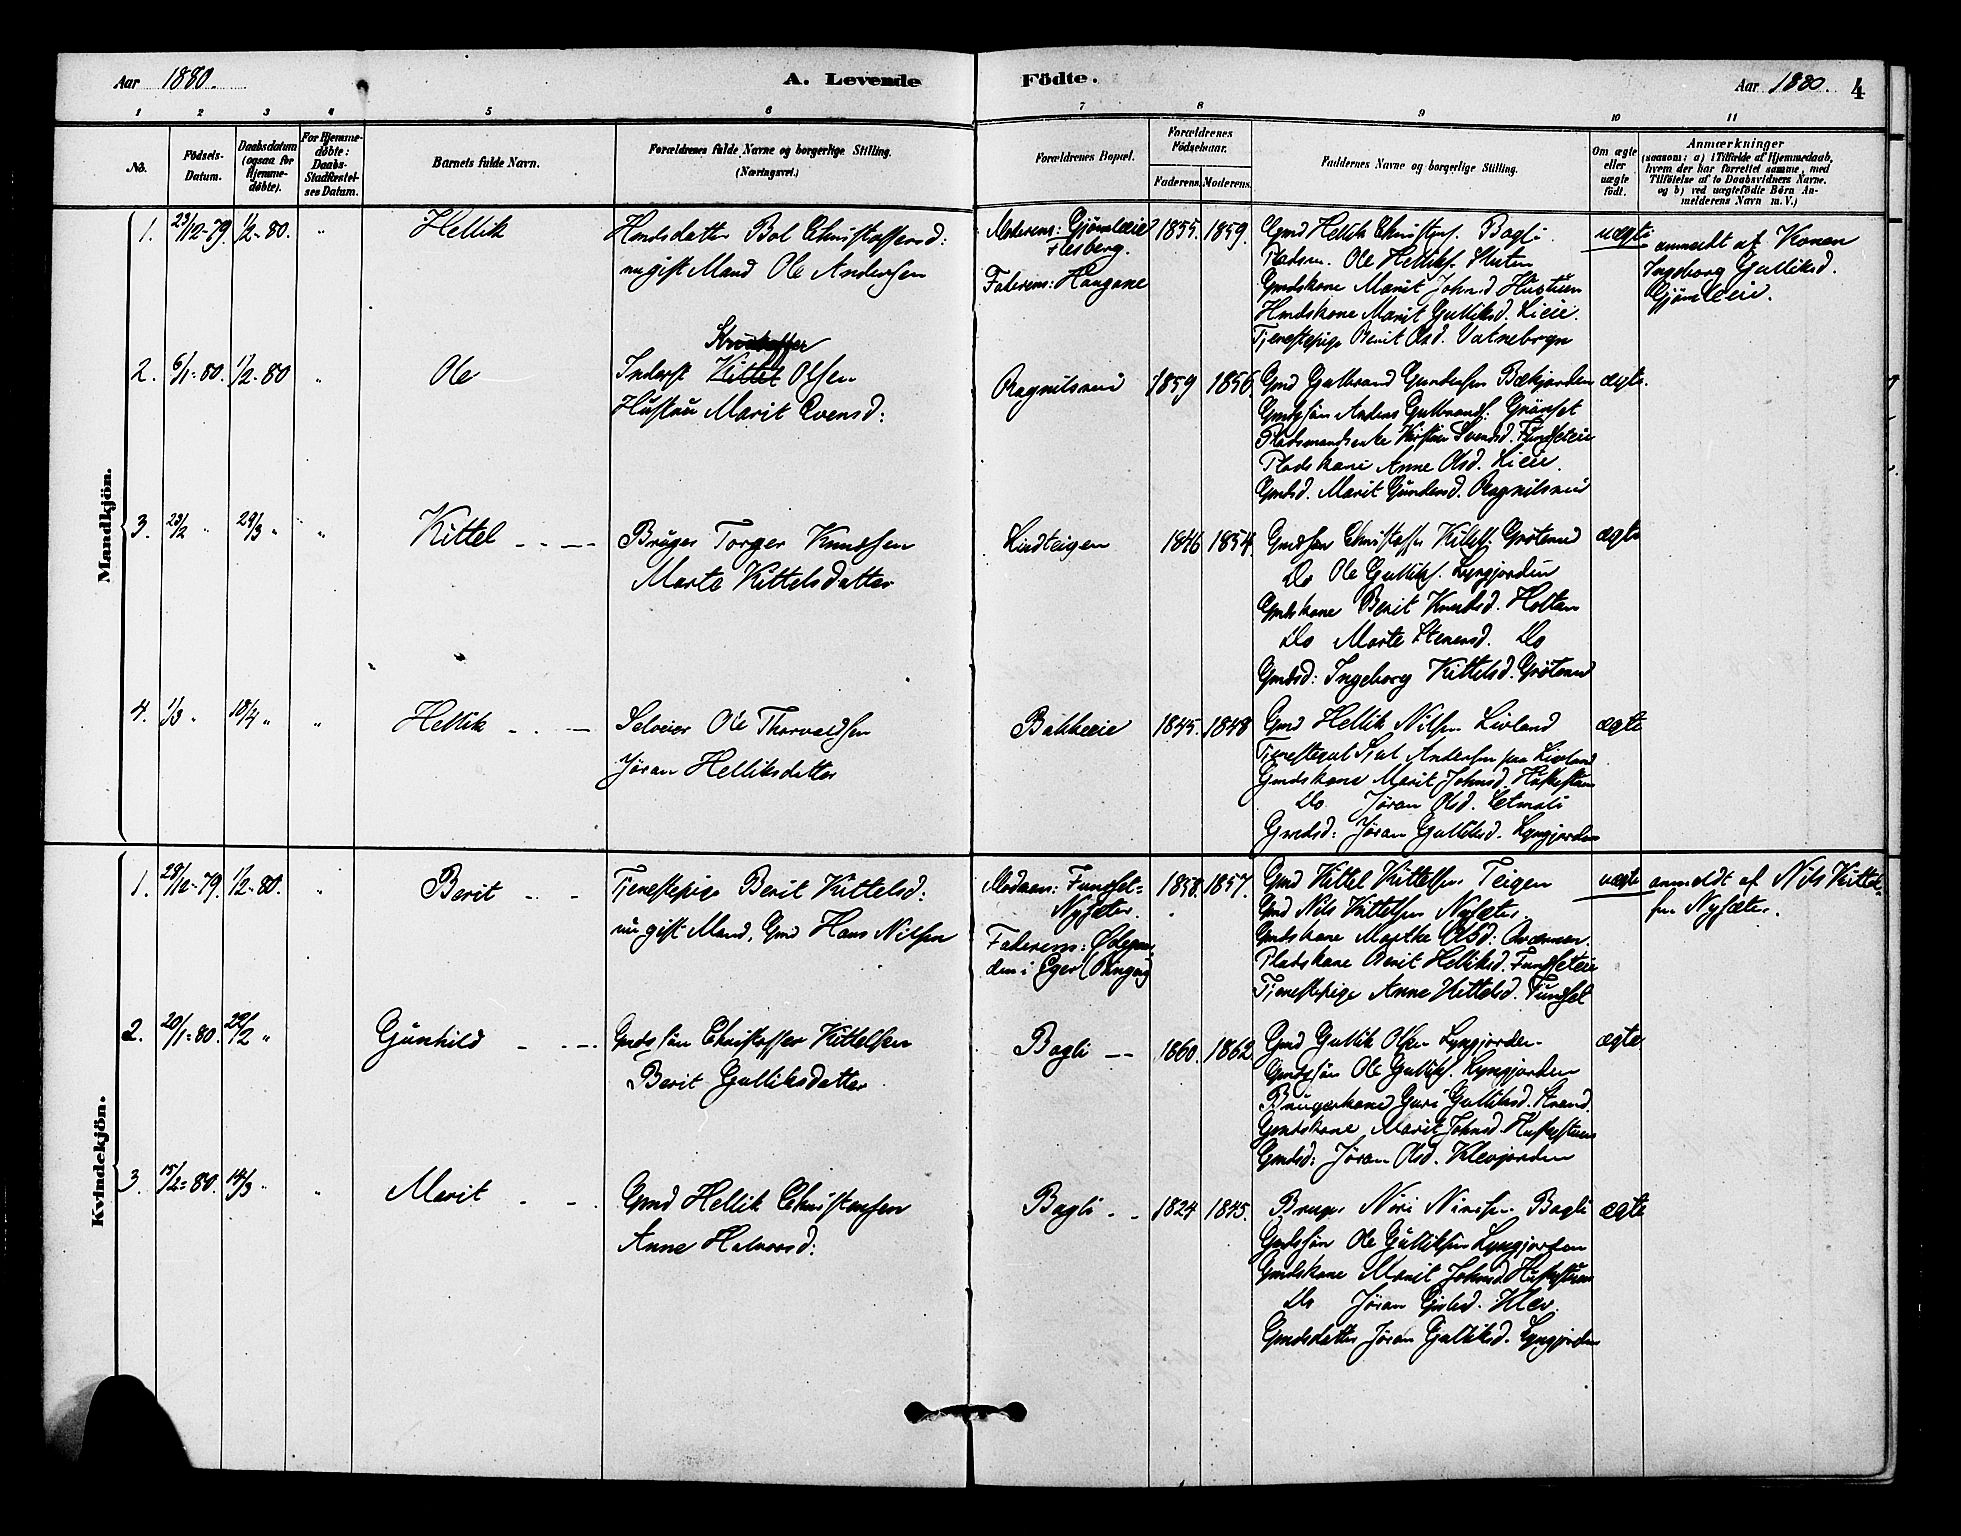 Aar 1880.
A. Levende Födte.
Aar 1880. 4
1 2 3 4 5 6 7 8 9 10 11
No.
Födsels-Datum.
Daabsdatum (ogsaa for Hjemmedøbte).
For Hjemmedøbte: Daabs-Stadfæstelses Datum.
Barnets fulde Navn.
Forældrenes fulde Navne og borgerlige Stilling.
(Næringsvei.)
Forældrenes Bopæl.
Forældrenes Fødselsaar.
Faderens. Moderens.
Faddernes Navne og borgerlige Stilling.
Om ægte eller uægte født.
Anmærkninger
(saasom: a) i Tilfælde af Hjemmedaab, hvem der har forrettet samme, med Tilföielse af to Daabsvidners Navne, og b) ved uægtefödte Börn Anmelderens Navn m.V.)
Mandkjön.
1. 23/12-79. 1/2-80. " Hellik
Hmdsdatter Bol Christoffersd:
ugift Mand Ole Andersen
Moderens: Gjömleeie
Flesberg.
Faderens: Haugane
1855. 1859.
Gmd Hellik Christofs. Bagli
Pladsm. Ole Helliks. Sluten
Gmdskone Marit Johnsd Hustuen
Hmdskone Marit Gulliksd. Lieie.
Tjenestepige Berit Olsd. Vatnebryn
uægte
anmeldt af Konen
Ingeborg Gulliksd.
Gjömleeie.
2. 6/1-80. 1/2-80 " Ole
Kristoffer
Inderst Kittel Olsen
Hustru Marit Evensd:
Ragnilsrud
1859 1856.
Gmd Gulbrand Gundersen Bækjorden
Gmdssön Anders Gulbrands. Grönset
Pladsmandsenke Kirsten Svendsd. Fundseteie
Pladskone Anne Olsd. Lieie.
Gmdsd. Marit Gundersd. Ragnilsrud
ægte.
3. 23/2 " 29/3 " " Kittel
Bruger Torger Knudsen
Marte Kittelsdatter
Lindteigen
1846 1854
Gmdssön Christoffer Kittels. Grötrud
Do Ole Gulliks. Lyngjorden
Gmdskone Berit Knudsd. Holtan
Do Marte Stenersd. Do
Gmdsd: Ingeborg Kittelsd. Grötrud
ægte
4. 1/3 " 18/4 " " Hellik
Selveier Ole Thorvaldsen
Jöran Helliksdatter
Bakkeeie
1845. 1848
Gmd Hellik Nilsen Livland
Tjenestegut Andersen paa Livland
Gmdskone Marit Johnsd. Huskestuen
Do Jöran Olsd. Letmoli
Gmdsd: Jöran Gulliksd. Lyngjorden
ægte
Kvindekjön.
1. 28/12-79. 1/2-80. " Berit
Tjenestepige Berit Kittelsd:
ugift Mand, Gmd Hans Nilsen
Moderens: Fundset-
Nysæter.
Faderens:
den i Eger
1858. 1857.
Gmd Kittel Kittelsen Teigen
Gmd Nils Kittelsen Nysæter.
Gmdskone Marthe Olsd:
Pladskone Berit Helliksd. Fundseteie
Tjenestepige Anne Kittelsd. Fundset
uægte
anmeldt af Nils Kittel-
sen Nysæter.
2. 20/1-80. 29/2 " Gunhild
Gmdssön Christoffer Kittelsen
Berit Gulliksdatter
Bagli
1860. 1862.
Gmd Gullik Olsen Lyngjorden
Gmdssön Ole Gulliks. Lyngjorden
Brugerkone Guri Gulliksd. Strand.
Gmdskone Marit Johnsd. Huskestuen
Gmdsd: Jöran Olsd. Klevjorden
ægte
3. 15/2-80. 14/3 " " Marit
Gmd Hellik Christensen
Anne Halvorsd:
Bagli
1824 1845.
Bruger Nirisen Bagli
Gmdssön Ole Gulliksen Lyngjorden
Gmdskone Marit Johnsd. Huskestuen
Do Jöran Gisled. Klev.
Gmdsdatter Jöran Gulliksd. Lyngjorden
ægte